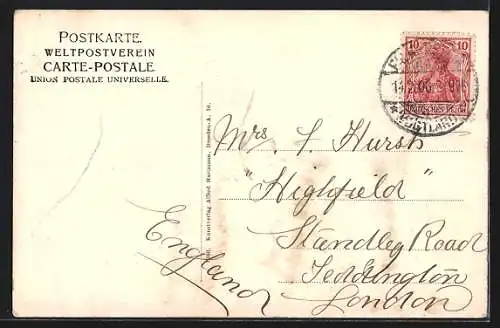 POSTKARTE.
WELTPOSTVEREIN
CARTE-POSTALE
UNION POSTALE UNIVERSELLE.
10 10
Kunstverlag Alfred Hartmann, Dresden-A. 16.
Mrs. L. Hursh
"Highfield"
Standley Road
Teddington
London
England